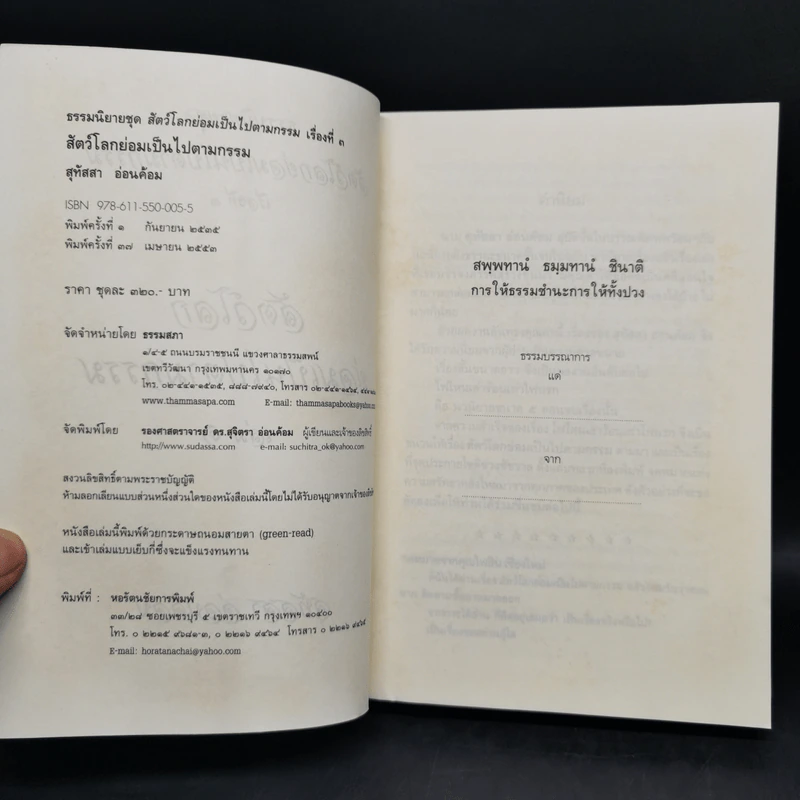 ธรรมนิยายชุด สัตว์โลกย่อมเป็นไปตามกรรม เรื่องที่ ๓
สัตว์โลกย่อมเป็นไปตามกรรม
สุทัสสา อ่อนค้อม
ISBN 978-611-550-005-5
พิมพ์ครั้งที่ ๑ กันยายน ๒๕๓๕
พิมพ์ครั้งที่ ๓๗ เมษายน ๒๕๕๓
ราคา ชุดละ ๓๒๐.- บาท
จัดจำหน่ายโดย ธรรมสภา
๑/๔-๕ ถนนบรมราชชนนี แขวงศาลาธรรมสพน์
เขตทวีวัฒนา กรุงเทพมหานคร ๑๐๑๗๐
โทร. ๐๒-๔๔๑-๑๕๓๕, ๘๘๘-๗๙๔๐, โทรสาร ๐๒-๔๔๑-๑๔๖๔,
www.thammasapa.com E-mail: thammasapabooks@yahoo.com
จัดพิมพ์โดย รองศาสตราจารย์ ดร.สุจิตรา อ่อนค้อม ผู้เขียนและเจ้าของลิขสิทธิ์
http://www.sudassa.com e-mail: suchitra_ok@yahoo.com
สงวนลิขสิทธิ์ตามพระราชบัญญัติ
ห้ามลอกเลียนแบบส่วนหนึ่งส่วนใดของหนังสือเล่มนี้โดยไม่ได้รับอนุญาตจากเจ้าของ
หนังสือเล่มนี้พิมพ์ด้วยกระดาษถนอมสายตา (green-read)
และเข้าเล่มแบบเย็บกี่ซึ่งจะแข็งแรงทนทาน
พิมพ์ที่ : หอรัตนชัยการพิมพ์
๓๓/๒๘ ซอยเพชรบุรี ๕ เขตราชเทวี กรุงเทพฯ ๑๐๔๐๐
โทร. ๐ ๒๒๑๕ ๙๖๘๑-๓, ๐ ๒๒๑๖ ๙๔๖๔ โทรสาร ๐ ๒๒๑๖ ๙๔๖๕
E-mail: horatanachai@yahoo.com
สพฺพทานํ ธมฺมทานํ ชินาติ
การให้ธรรมชำนะการให้ทั้งปวง
ธรรมบรรณาการ
แด่
จาก